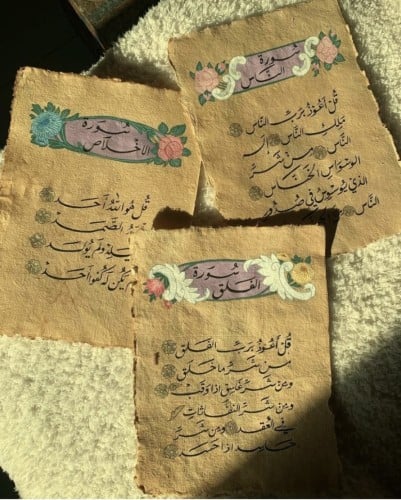 سورة
الناس
قل أعوذ برب الناس
ملك الناس اله
الناس من شر
الوسواس الخناس
الذي يوسوس في صدور
الناس من
سورة
الاخلاص
قل هو الله أحد
الصمد
يلد ولم يولد
يكن له كفوا أحد
سورة
الفلق
قل أعوذ برب الفلق
من شر ما خلق
ومن شر غاسق اذا وقب
ومن شر النفاثات
في العقد ومن شر
حاسد اذا حسد